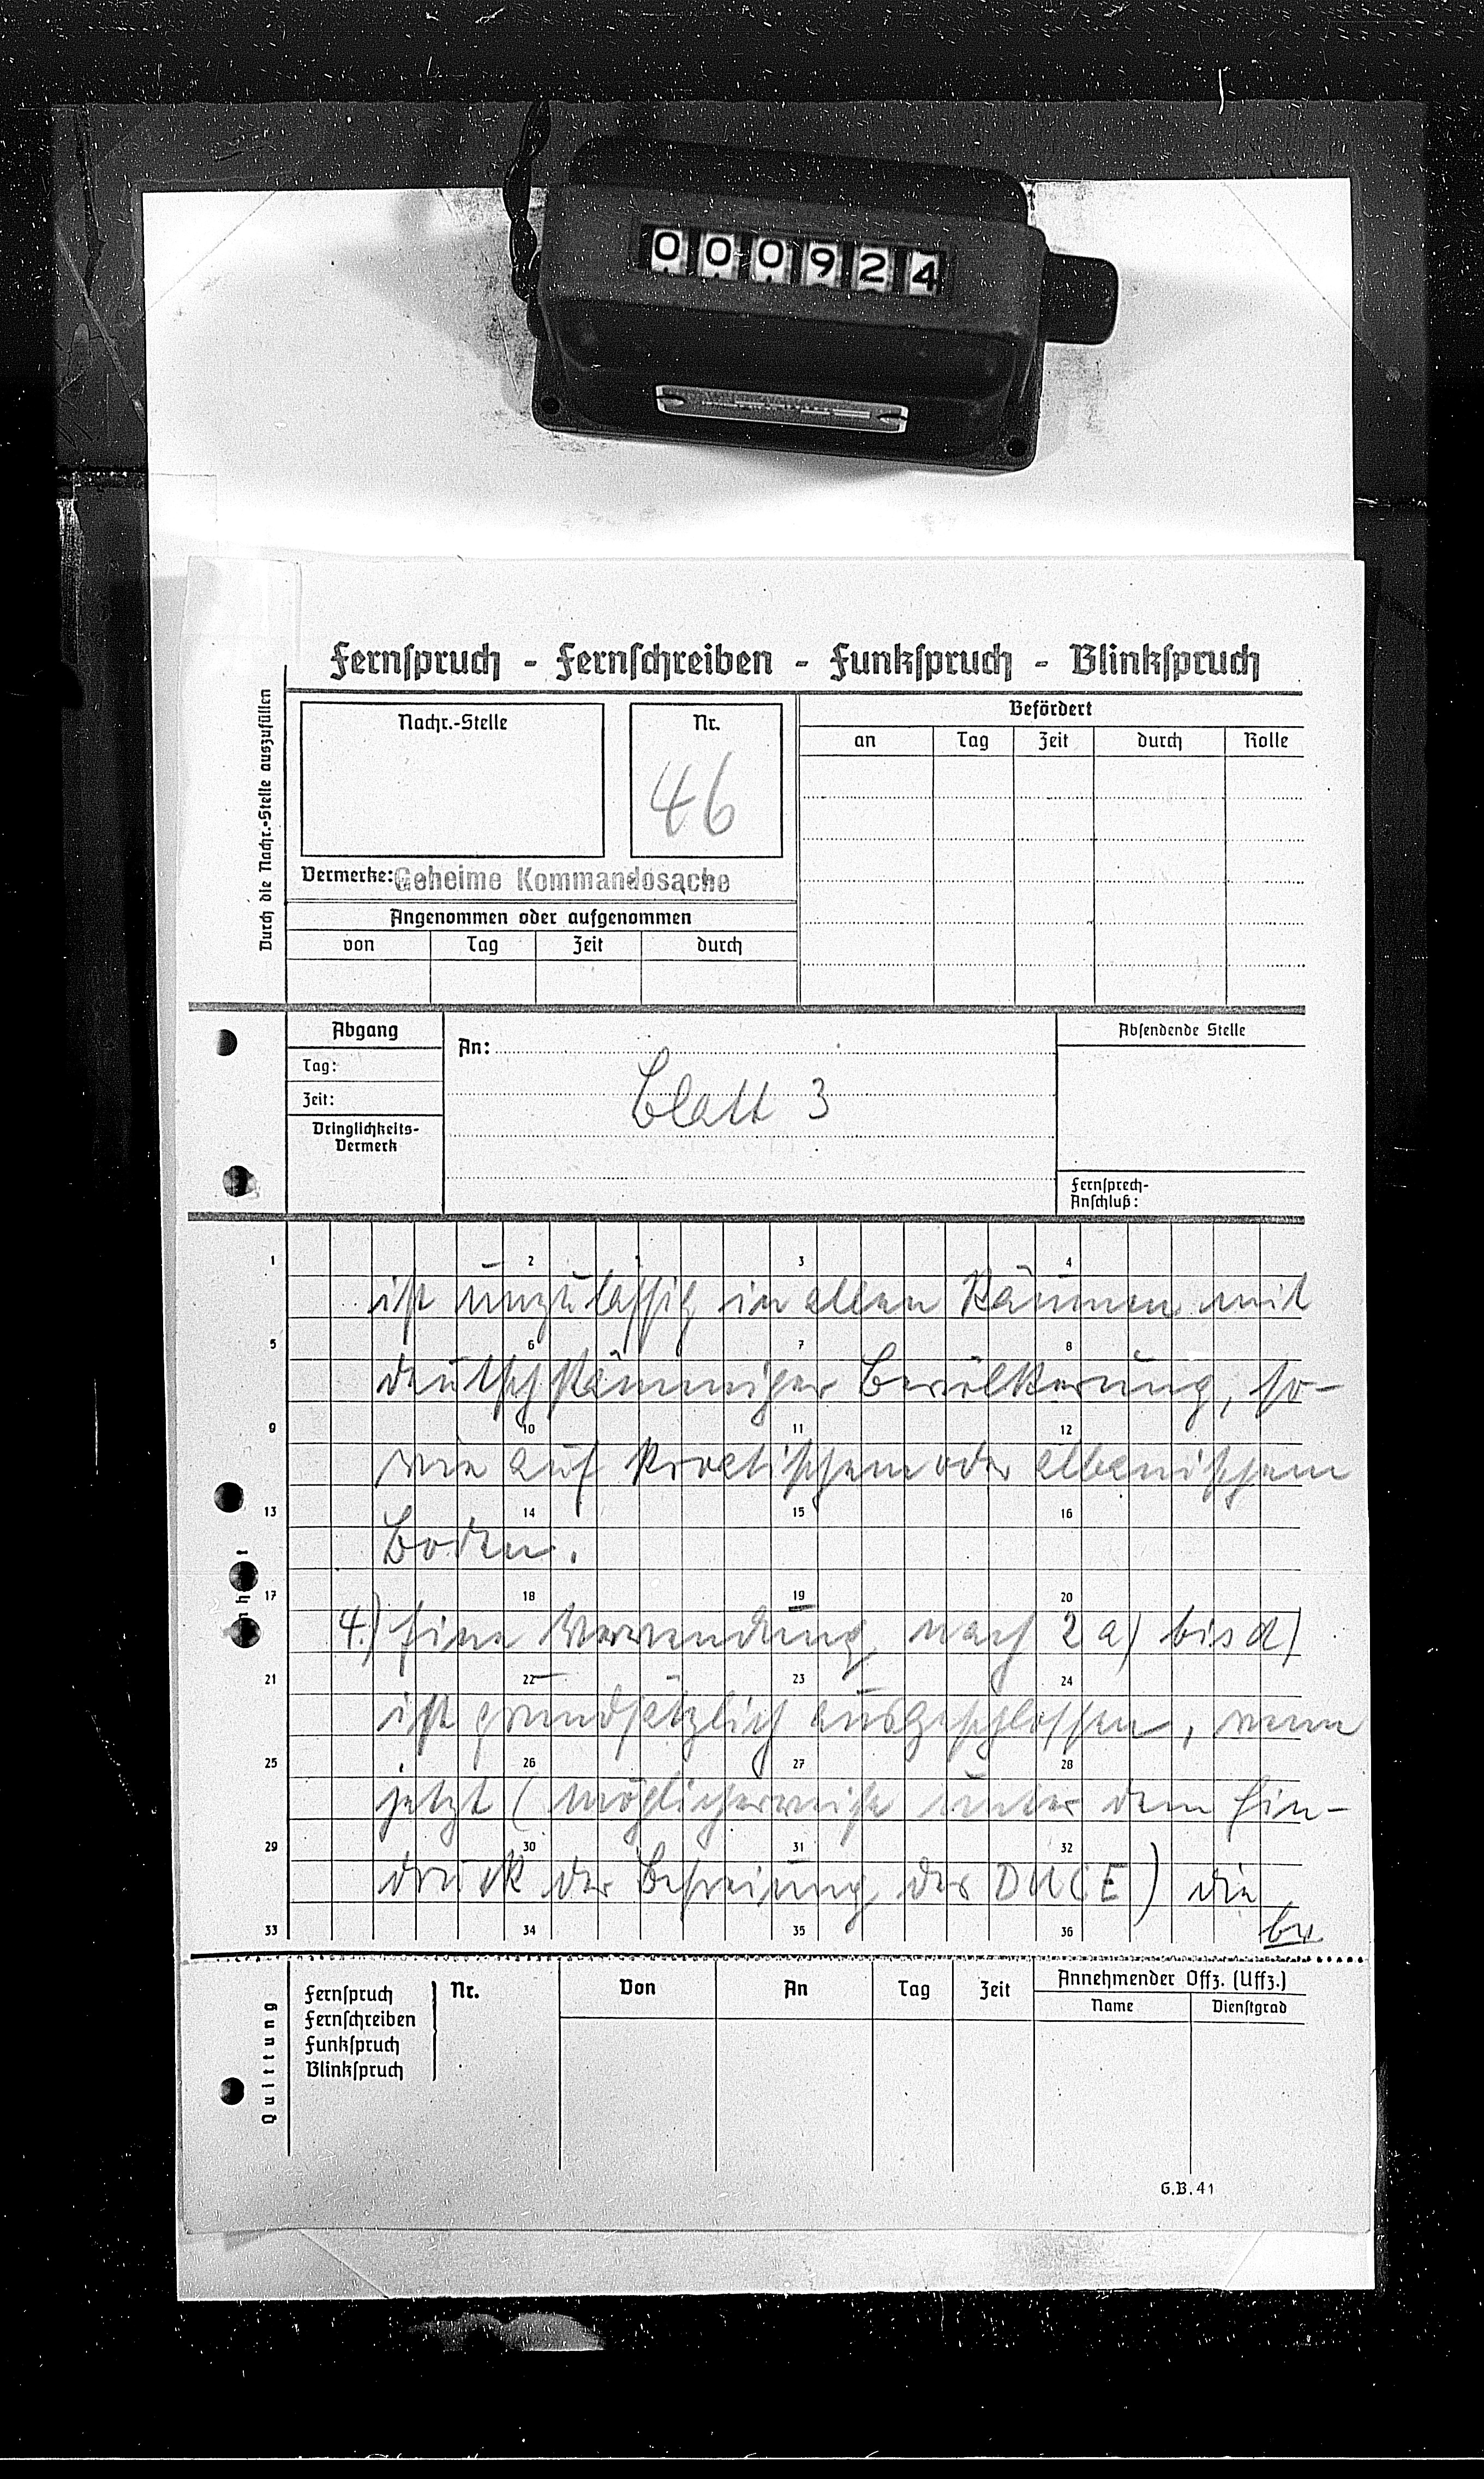 000924
Fernspruch - Fernschreiben - Funkspruch - Blinkspruch
Durch die Nachr.-Stelle auszufüllen
Nachr.-Stelle
Nr.
46
Befördert
an Tag Zeit durch Rolle
Vermerke: Geheime Kommandosache
Angenommen oder aufgenommen
von Tag Zeit durch
Abgang
Tag:
Zeit:
Dringlichkeits-
Vermerk
An:
Blatt 3
Absendende Stelle
Fernsprech-
Anschluß:
1 2 3 4
ist unzulässig in allen Räumen mit
5 6 7 8
deutschstämmiger Bevölkerung, so-
9 10 11 12
wie auf kroatischem oder albanischem
13 14 15 16
Boden.
17 18 19 20
4.) Eine Verwendung nach 2 a) bis d)
21 22 23 24
ist grundsätzlich ausgeschlossen, wenn
25 26 27 28
jetzt (möglicherweise unter dem Ein-
29 30 31 32
druck der Befreiung des DUCE) die
33 34 35 36
Quittung
Fernspruch
Fernschreiben
Funkspruch
Blinkspruch
Nr. Von An Tag Zeit
Annehmender Offz. (Uffz.)
Name Dienstgrad
G.B.41